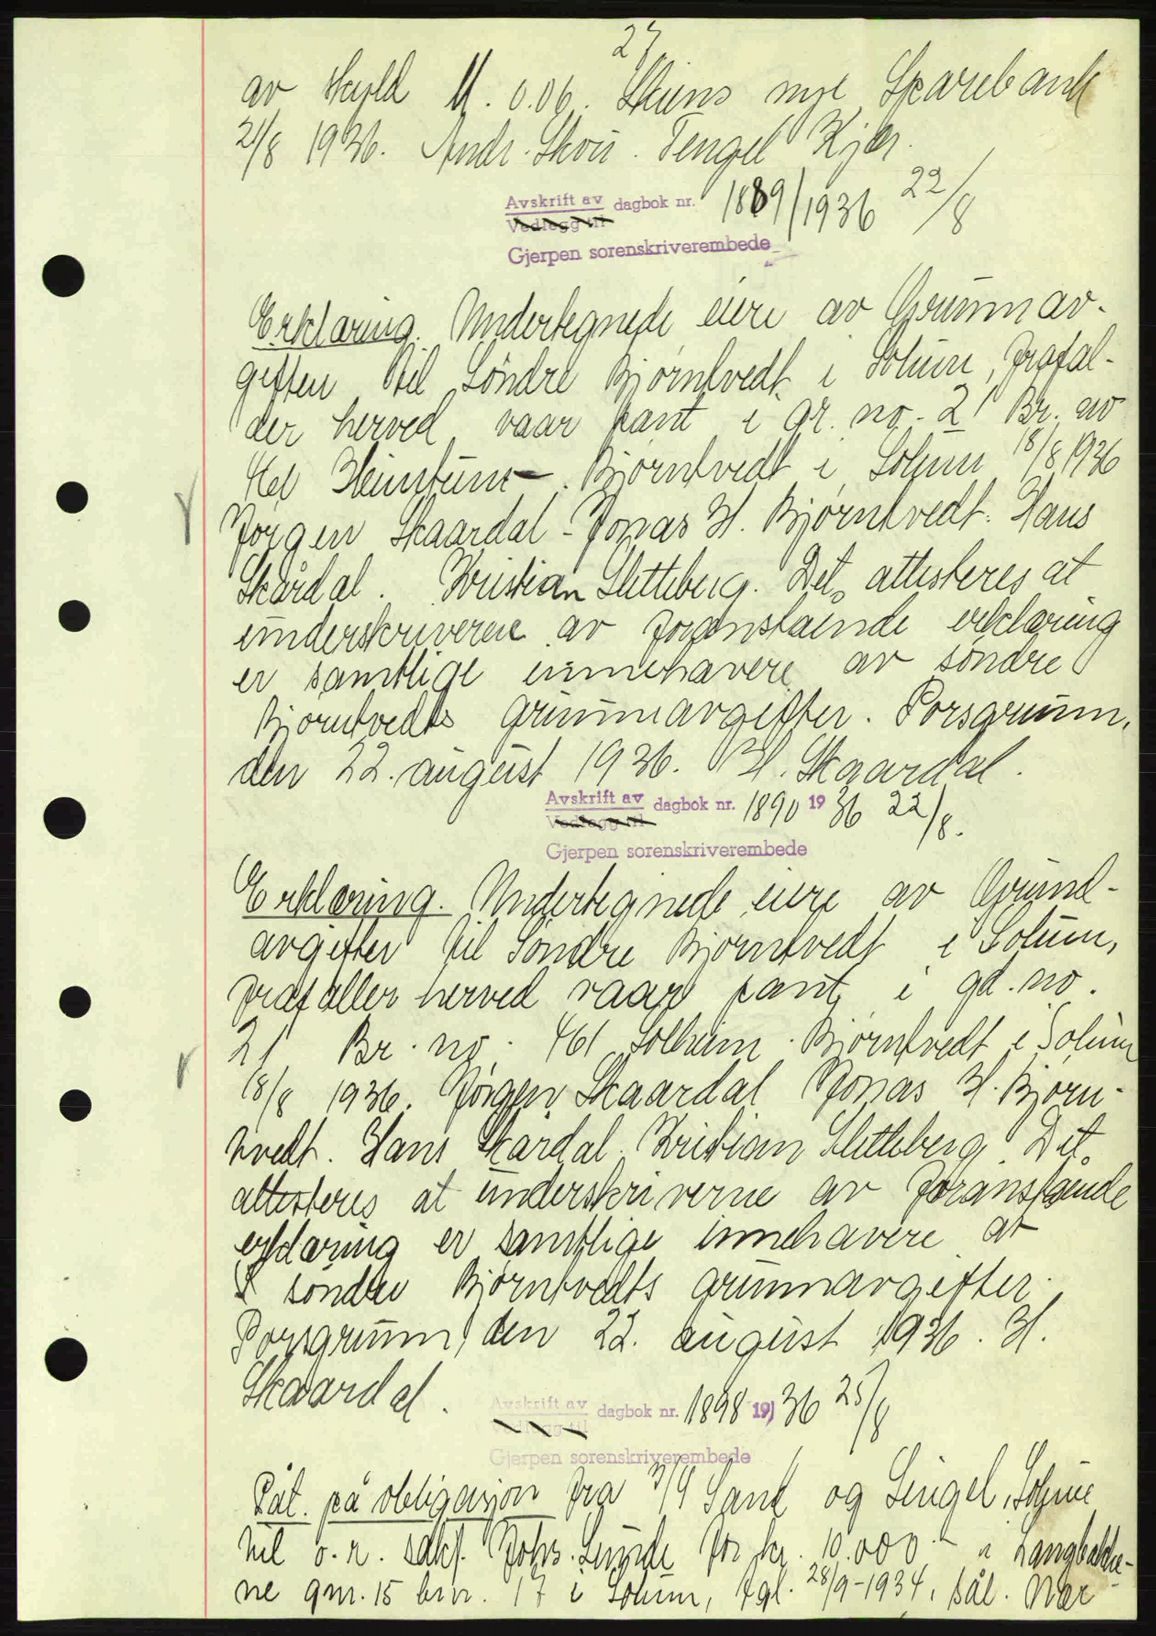 27
av skyld M. 0.06. Skiens nye Sparebank
21/8 1936. Andr. Skou. Tengel Kjær.
Avskrift av dagbok nr. 1889/1936 22/8
Vedlegg til
Gjerpen sorenskriverembede
Erklæring. Undertegnede eiere av Grunnav-
giften til Søndre Bjørntvedt i Solum, frafal-
der herved vaar pant i gr. no. 21 Br. no
461 Bjørntvedt i Solum 18/8 1936
Jørgen Skaardal - Jonas H. Bjørntvedt. Hans
Skårdal. Kristian Sletteberg. Det attesteres at
underskriverene av foranstående erklæring
er samtlige innehavere av søndre
Bjørntvedts grunnavgifter. Porsgrunn,
den 22. august 1936. H. Skaardal.
Avskrift av dagbok nr. 1890 1936 22/8.
Vedlegg til
Gjerpen sorenskriverembede
Erklæring. Undertegnede eiere av Grund-
avgifter til Søndre Bjørntvedt i Solum,
frafaller herved vaar pant i gd. no.
21 Br. no. 461 Solheim Bjørntvedt i Solum
18/8 1936. Jørgen Skaardal Jonas H. Bjørn-
tvedt. Hans Skårdal. Kristian Sletteberg. Det
attesteres at underskriverne av foranstående
erklæring er samtlige innehavere at
søndre Bjørntvedts grunnavgifter.
Porsgrunn, den 22. august 1936. H.
Skaardal.
Avskrift av dagbok nr. 1898 1936 25/8
Vedlegg til
Gjerpen sorenskriverembede
Påt. på obligasjon fra A/S Sand og Singel, Solum
til o.r. sakf. Johs. Lunde for kr. 10.000 - i Langbakke-
ne gnr. 15 bnr. 17 i Solum, tgl. 28/9-1934, sål. Nær